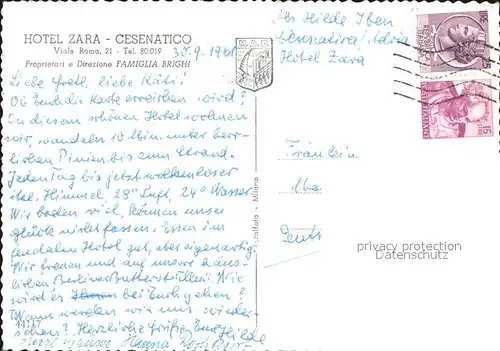 HOTEL ZARA - CESENATICO
Viale Roma, 21 - Tel. 80.019
Proprietari e Direzione FAMIGLIA BRIGHI
30.9.1961
Hilde Iben
Cesenatico/Adria
Hotel Zara
Liebe Gretl, liebe Käti!
Ob Euch die Karte erreichen wird?
In diesem schönen Hotel wohnen
wir, wandeln 10 Min. unter herr-
lichen Pinien bis zum Strand.
Jeden Tag bis jetzt wolkenloser
ital. Himmel, 28° Luft, 24° Wasser
Wir baden viel, können unser
Glück nicht fassen. Essen im
feudalen Hotel gut, aber eigenartig.
Wir freuen uns auf unsere häus-
lichen Berliner Butterstullen! Wie
wird es bei Euch gehen?
Wann werden wir uns wieder-
sehen? Herzliche Grüße Eure Hilde
Hanna
44117
Fotolfoto - Milano
Fräulein
Deuts
privacy protection
Datenschutz